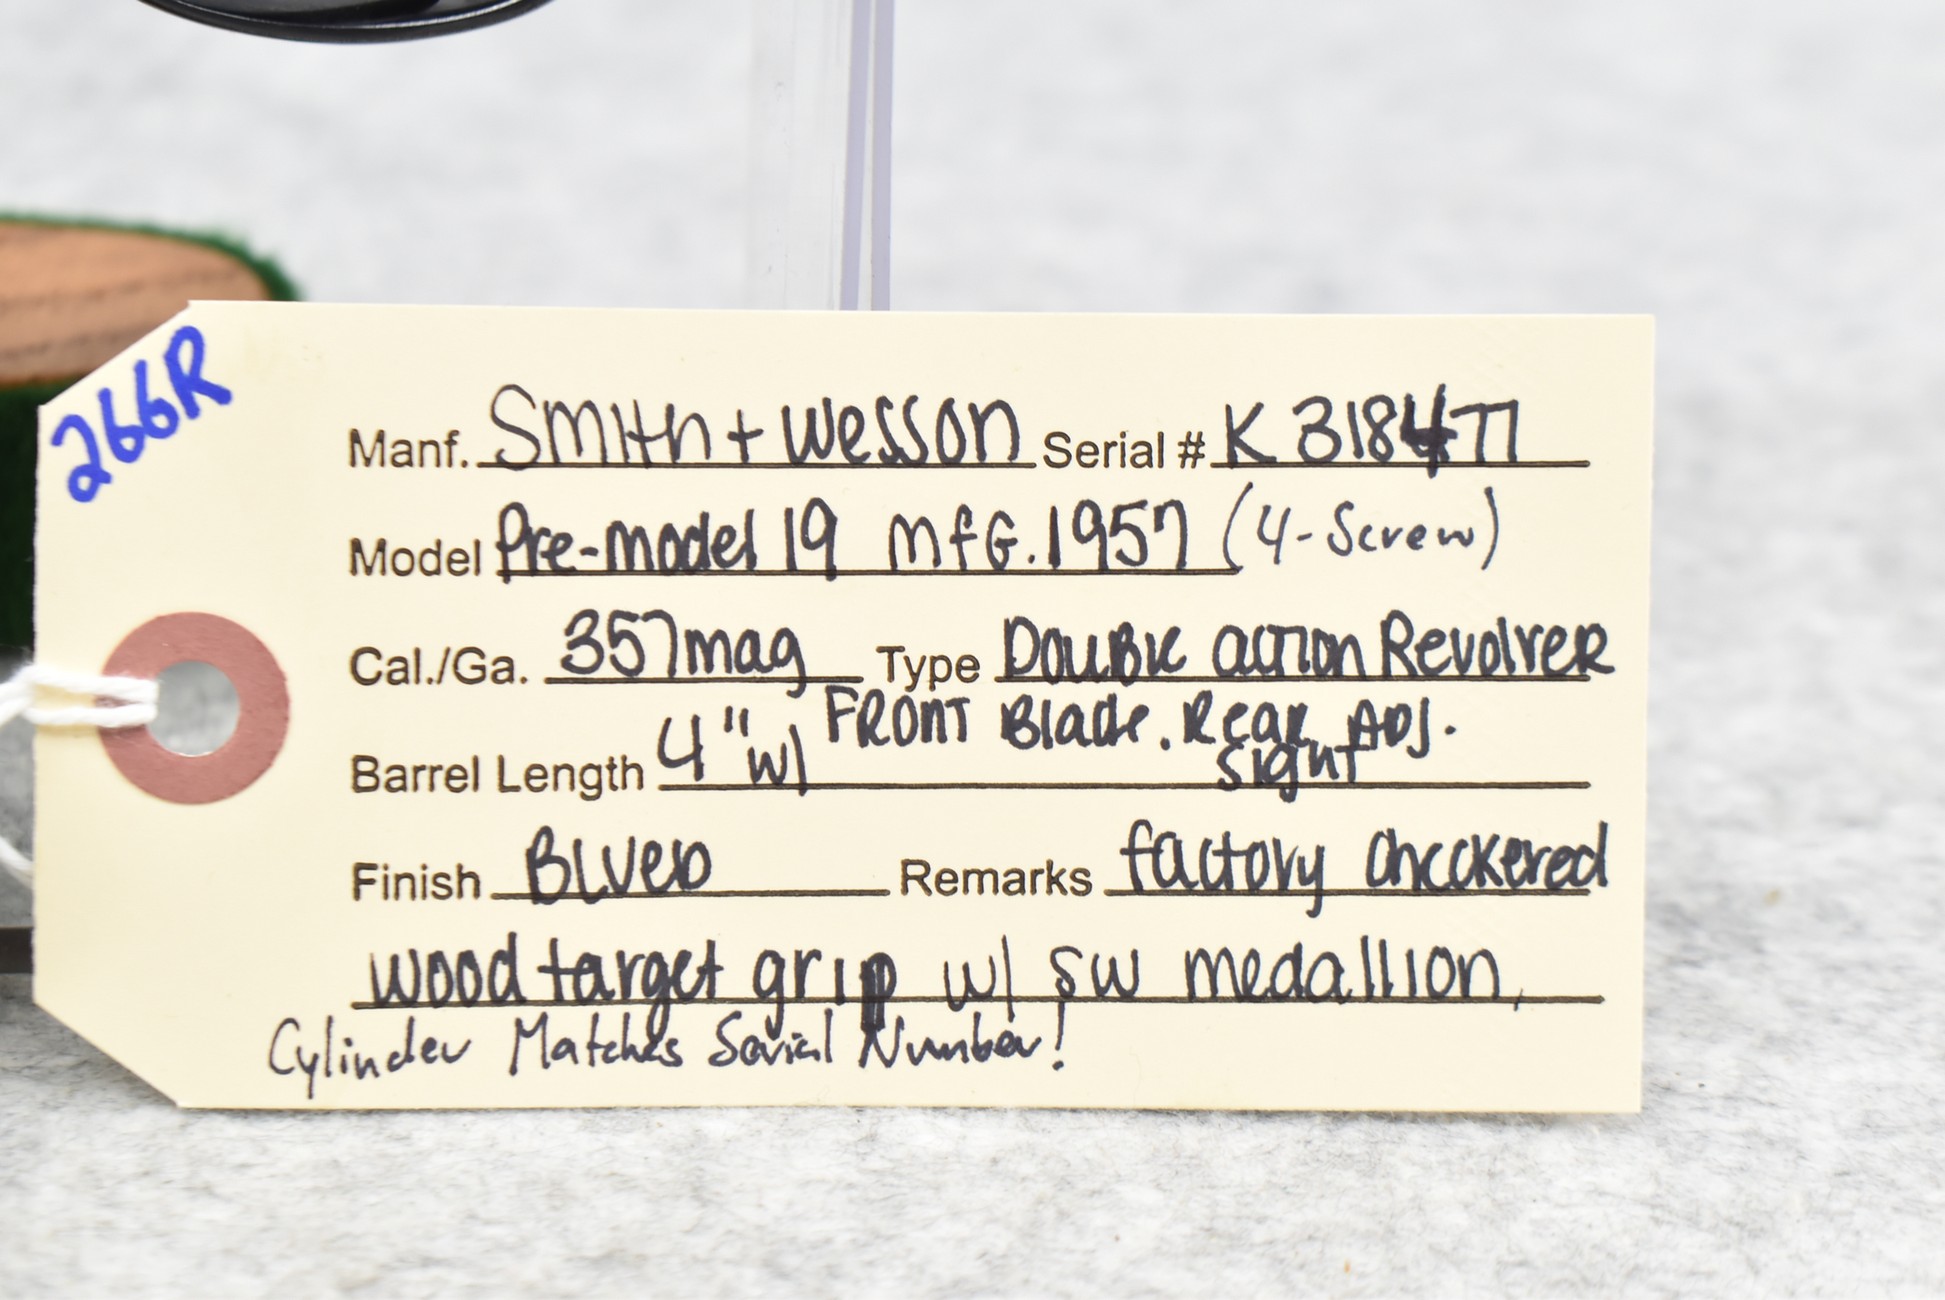 266R
Manf. Smith + Wesson Serial # K 318477
Model Pre-model 19 MFG. 1957 (4-Screw)
Cal./Ga. 357 mag Type Double action Revolver
Barrel Length 4" w/ FRONT Blade. Rear ADJ.
sight
Finish Blued Remarks factory checkered
wood target grip w/ SW medallion,
Cylinder Matches Serial Number!